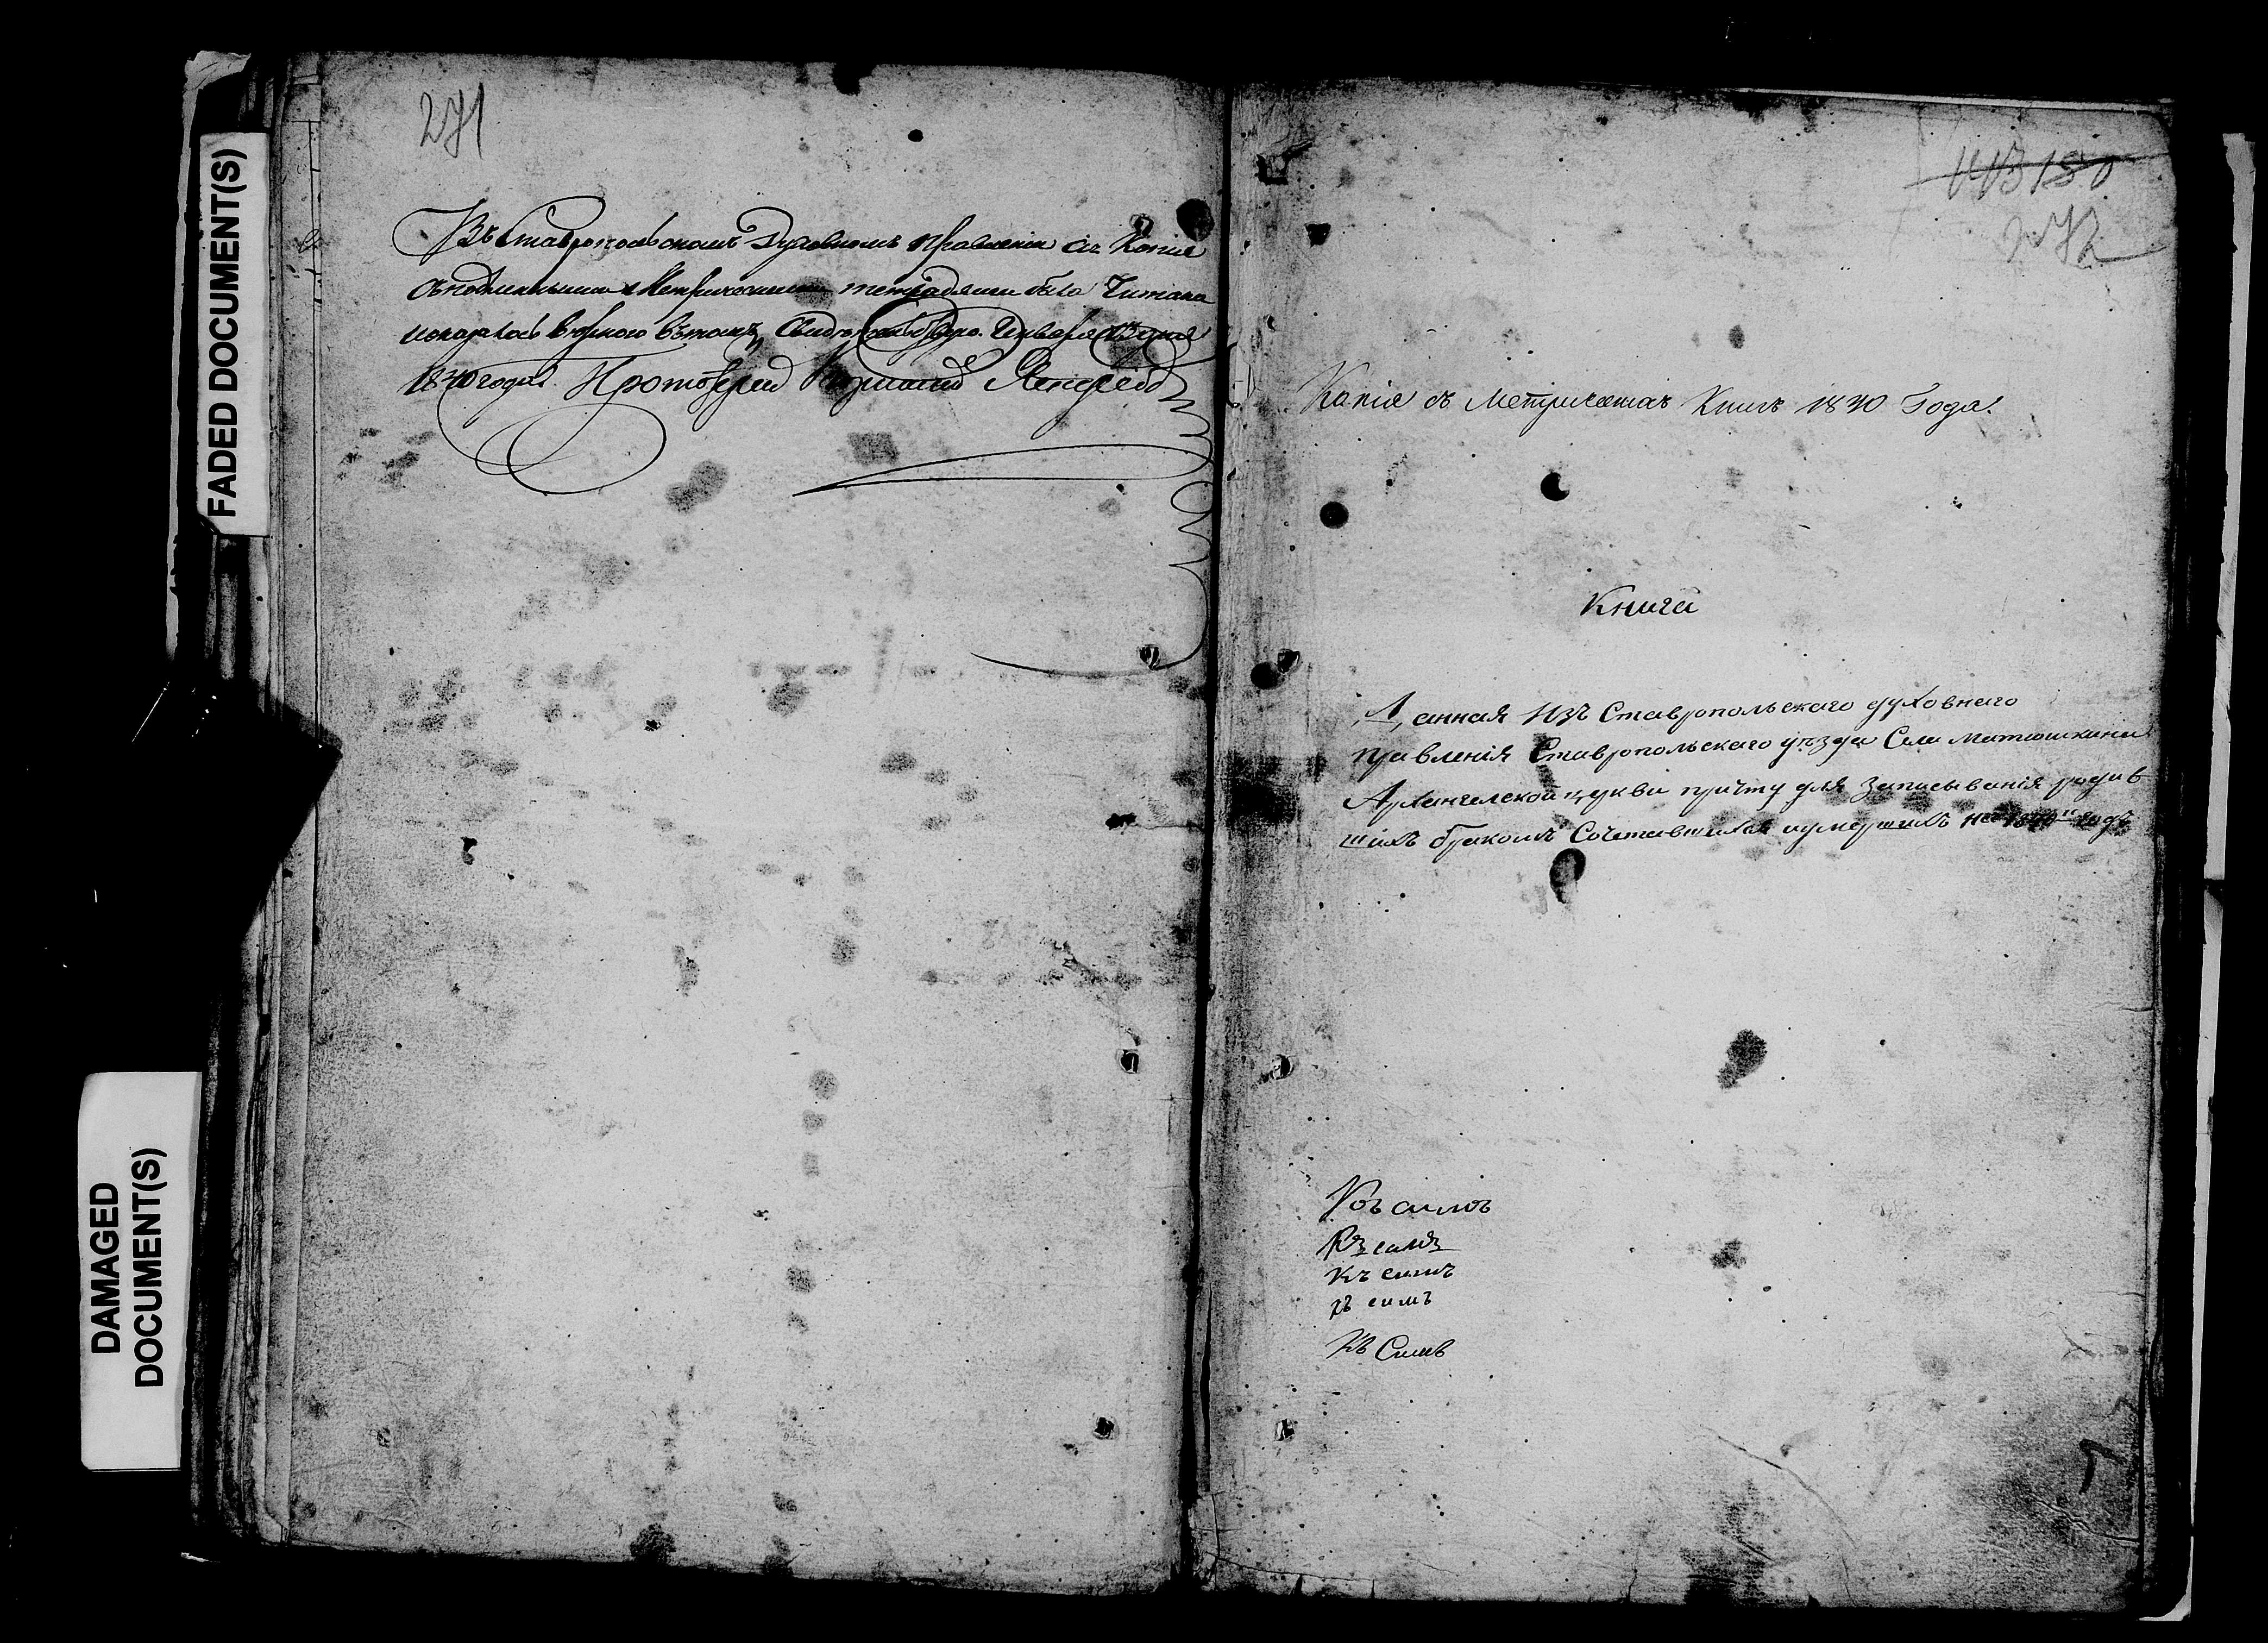 FADED DOCUMENT(S)
DAMAGED
DOCUMENT(S)
271
Въ Ставропольскомъ Духовномъ Правленіи сія Копія
съ подлинными Метрическими тетрадями была Читана
1840 года. Протоіерей
180
272
Копія съ Метрическихъ Книгъ 1840 Года.
Книга
Данная изъ Ставропольскаго духовнаго
правленія Ставропольскаго уѣзда Села Матюшкина
Архангелской церкви причту для записыванія родив
шихъ бракомъ Сочетавшихся и умершихъ на 1840й годъ
Къ симъ
Къ симъ
Къ симъ
къ симъ
Къ Симъ